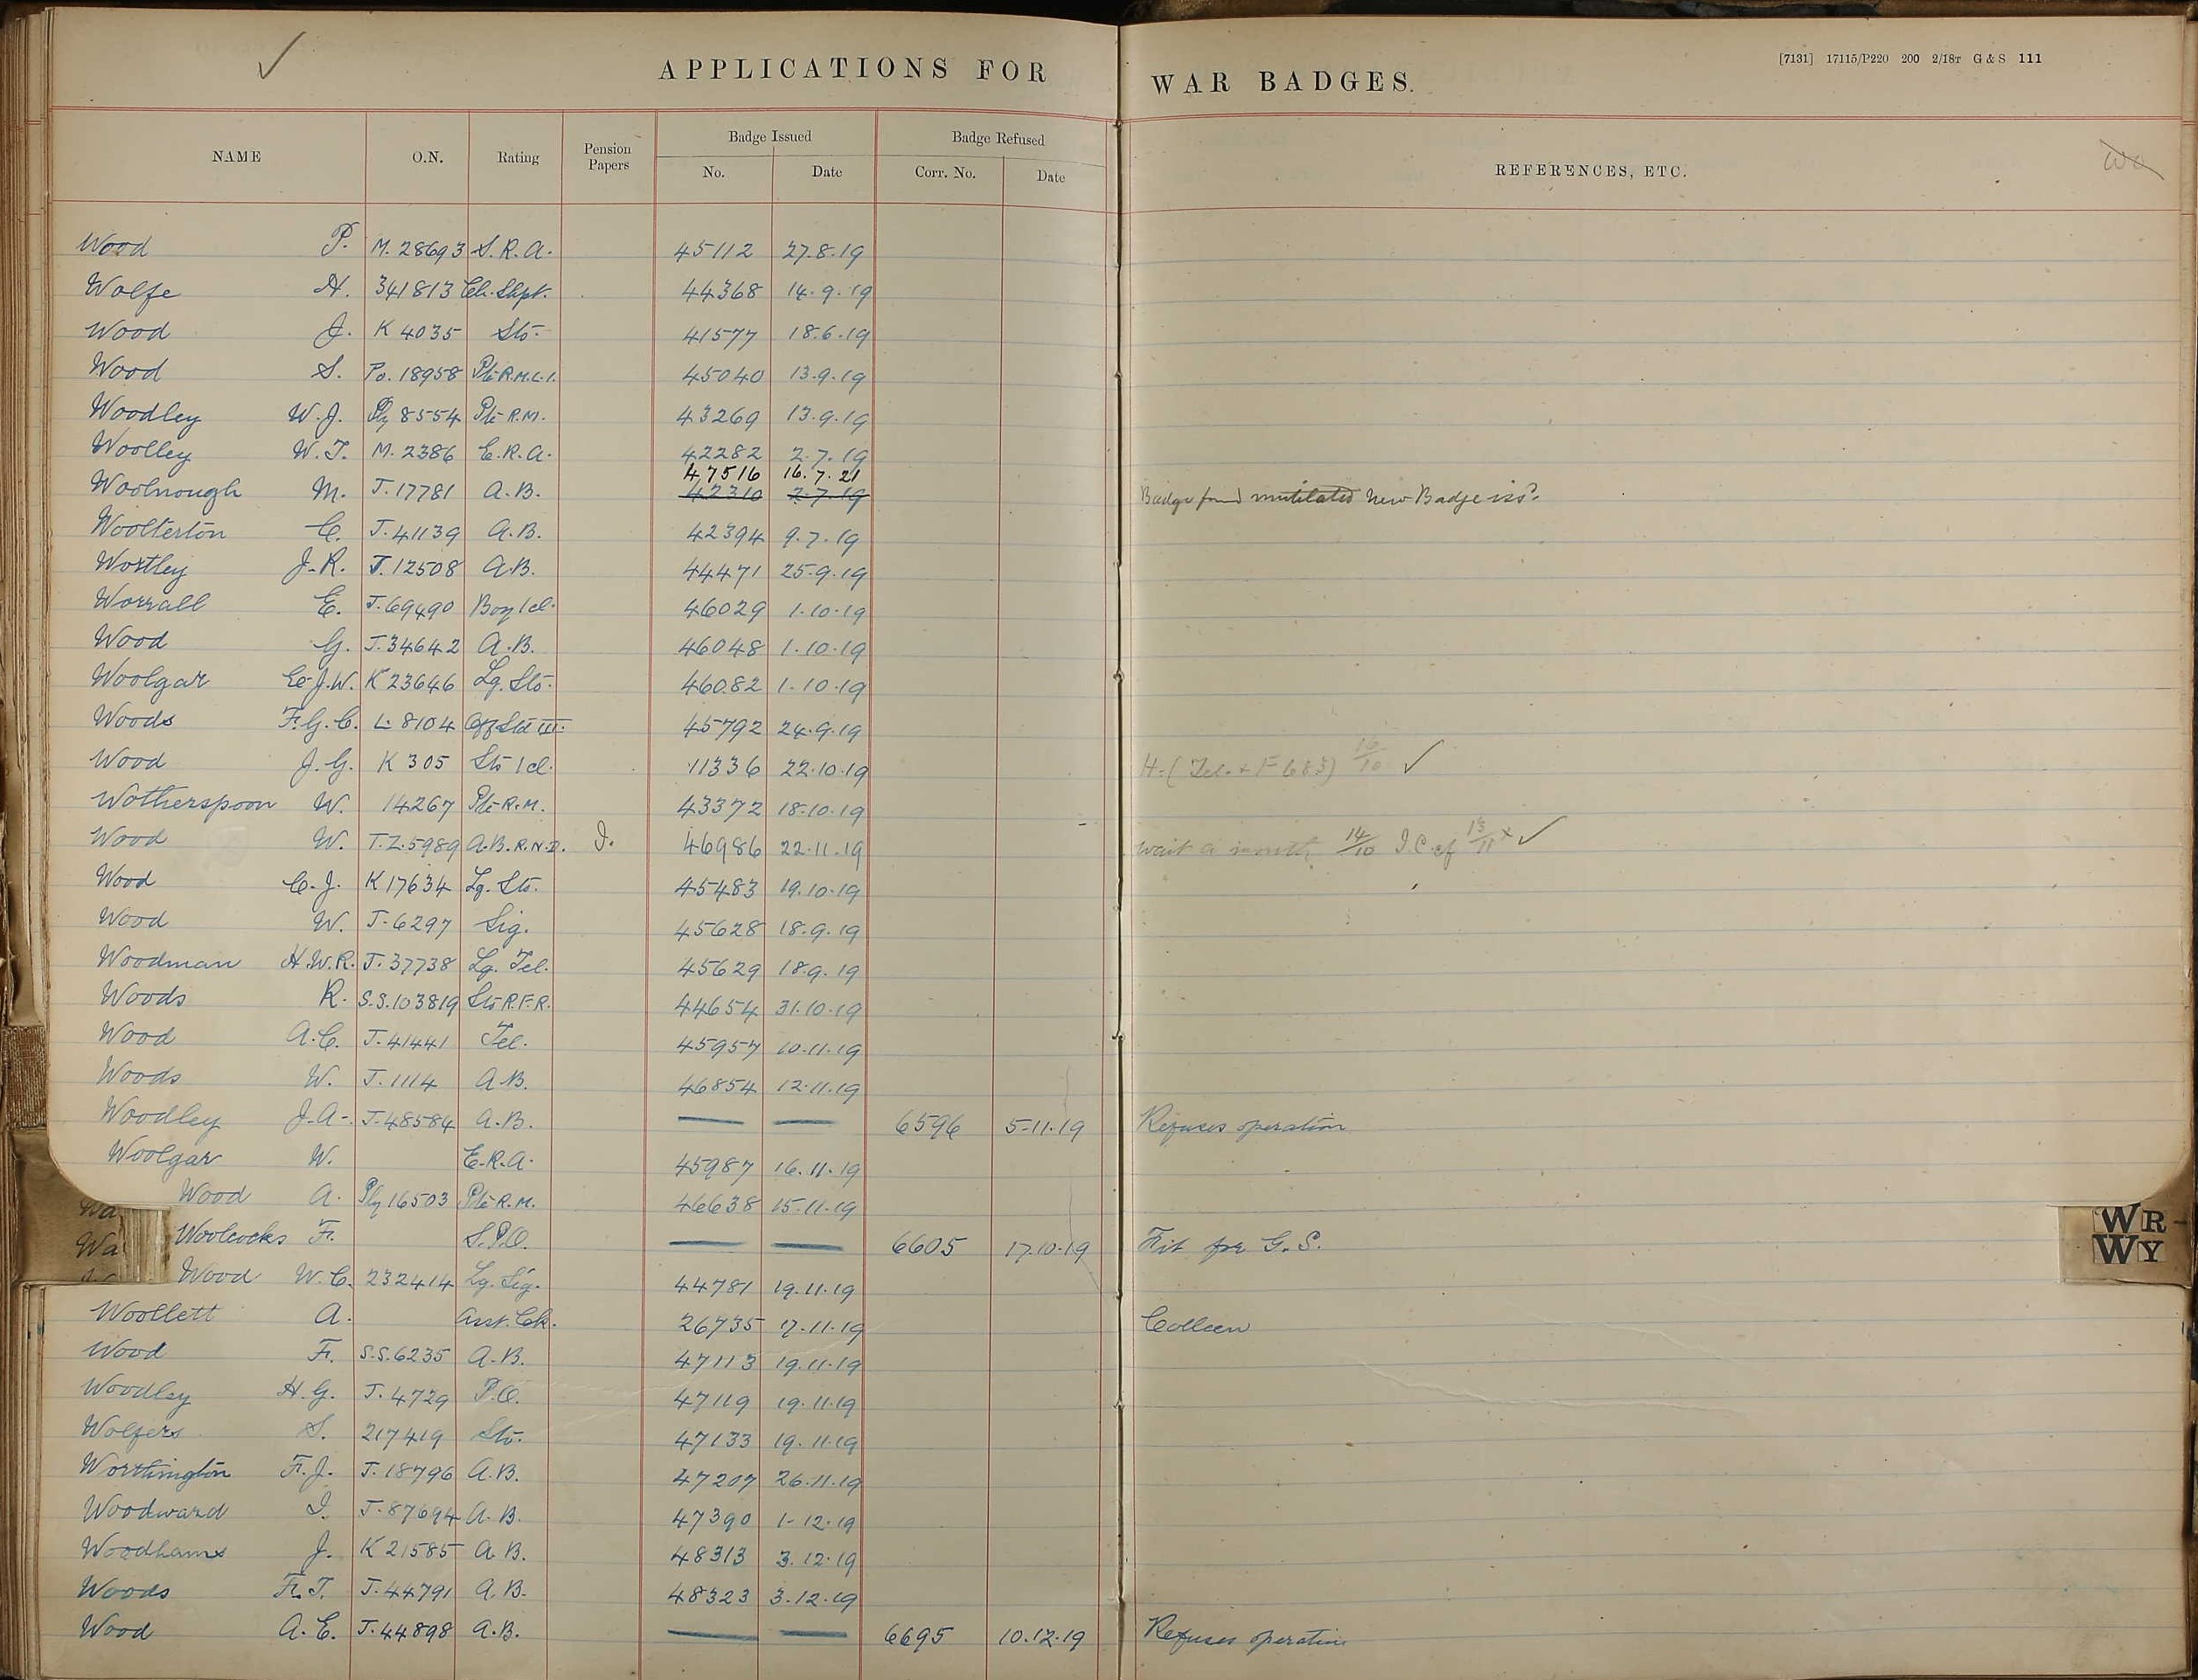 APPLICATIONS FOR WAR BADGES.
[7131] 17115/P220 200 2/18T G & S 111
NAME O.N. Rating Pension Papers Badge Issued No. Date Badge Refused Corr. No. Date REFERENCES, ETC.
Wo
Wood P. M. 28693 S.R.A. 45112 27.8.19
Wolfe H. 341813 Ch. Shpt. 44368 14.9.19
Wood J. K 4035 Sto. 41577 18.6.19
Wood S. Po. 18958 Pte R.M.L.I. 45040 13.9.19
Woodley W.J. Ply 8554 Pte R.M. 43269 13.9.19
Woolley W.T. M. 2386 E.R.A. 42282 2.7.19
47516 16.7.21
Woolnough M. J. 17781 A.B. 42310 2.7.19 Badge found mutilated New Badge issd.
Woolterton C. J. 41139 A.B. 42394 9.7.19
Wortley J.R. J. 12508 A.B. 44471 25.9.19
Worrall E. J. 69490 Boy 1 cl. 46029 1.10.19
Wood G. J. 34642 A.B. 46048 1.10.19
Woolgar C.J.W. K 23646 Lg. Sto. 46082 1.10.19
Woods F.G.C. L. 8104 Off Std III. 45792 24.9.19
Wood J.G. K 305 Sto 1 cl. 11336 22.10.19 H. (Tel. + F 683) 16/10 ✓
Wotherspoon W. 14267 Pte R.M. 43372 18.10.19
Wood W. T.Z. 5989 A.B. R.N.D. I. 46986 22.11.19 wait a month 14/10 I.C. of 13/11 x ✓
Wood C.J. K 17634 Lg. Sto. 45483 19.10.19
Wood W. J. 6297 Sig. 45628 18.9.19
Woodman H.W.R. J. 37738 Lg. Tel. 45629 18.9.19
Woods R. S.S. 103819 Sto R.F.R. 44654 31.10.19
Wood A.C. J. 41441 Tel. 45957 10.11.19
Woods W. J. 1114 A.B. 46854 12.11.19
Woodley J.A. J. 48584 A.B. — — 6596 5.11.19 Refuses operation
Woolgar W. E.R.A. 45987 16.11.19
Wood A. Ply 16503 Pte R.M. 46638 15.11.19
Wa
Woolcocks F. S.P.O. — — 6605 17.10.19 Fit for G.S.
Wa
WR
WY
Wood W.C. 232414 Lg. Sig. 44781 19.11.19
Woollett A. Asst. Ck. 26735 17.11.19 Colleen
Wood F. S.S. 6235 A.B. 47113 19.11.19
Woodley H.G. J. 4729 P.O. 47119 19.11.19
Wolfers S. 217419 Sto. 47133 19.11.19
Worthington F.J. J. 18796 A.B. 47207 26.11.19
Woodward I. J. 87694 A.B. 47390 1.12.19
Woodhams J. K 21585 A.B. 48313 3.12.19
Woods F.T. J. 44791 A.B. 48323 3.12.19
Wood A.E. J. 44898 A.B. — — 6695 10.12.19 Refuses operation